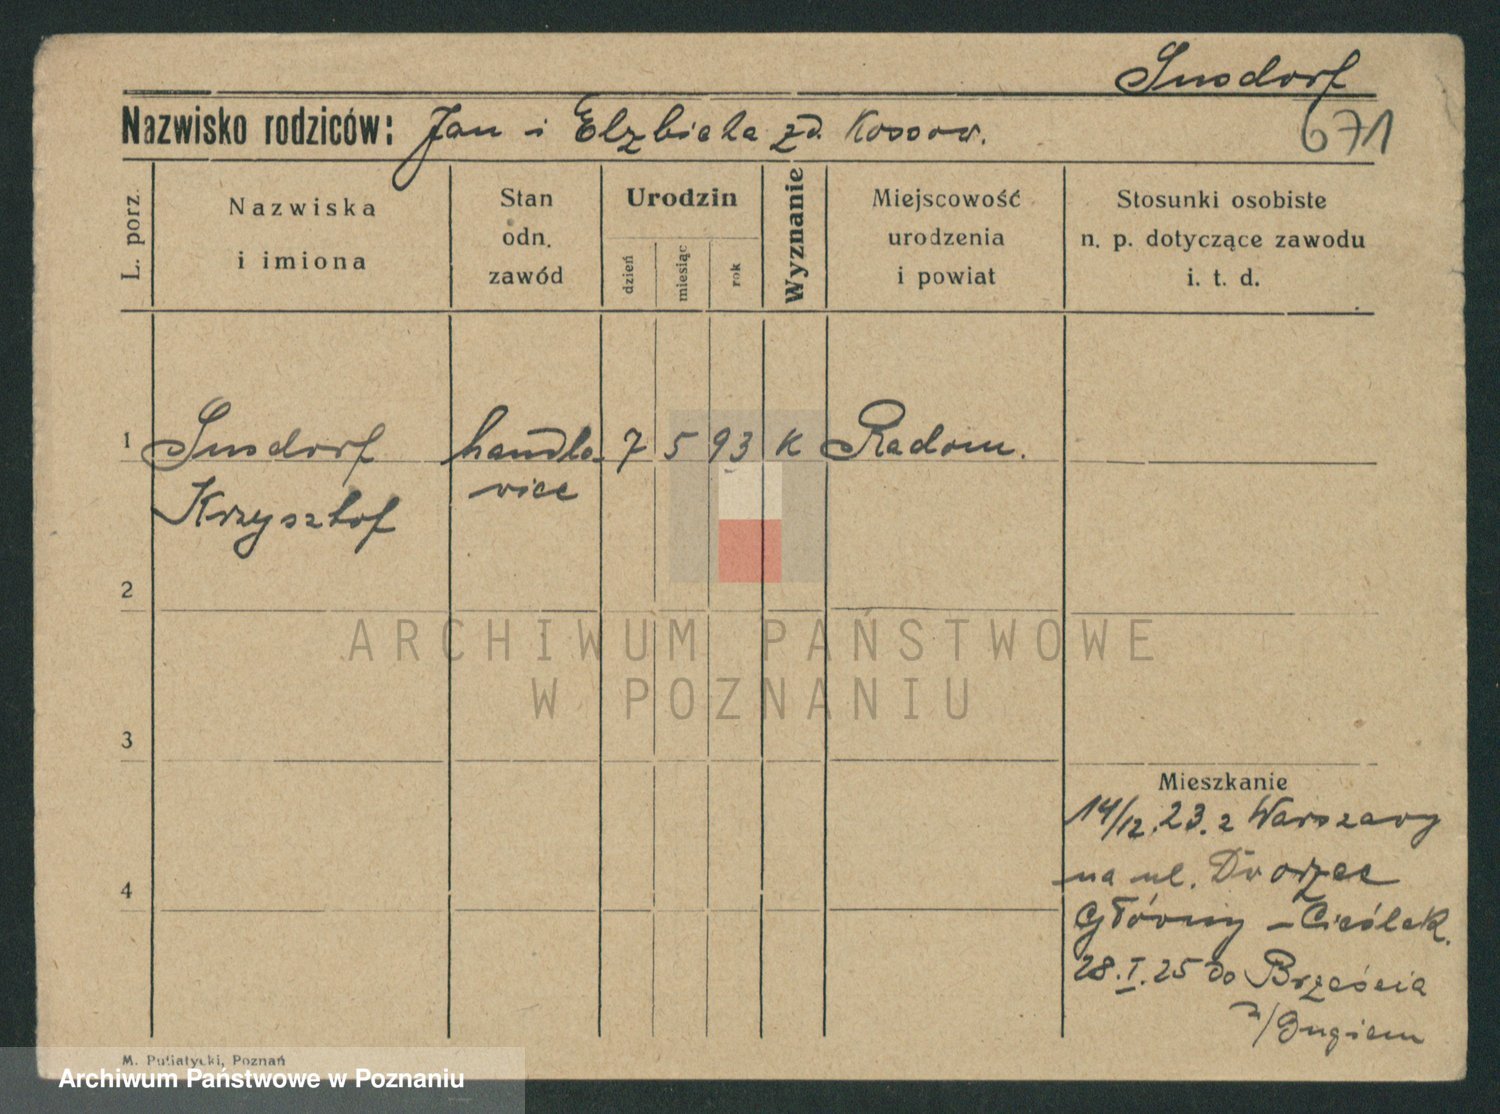 Susdorf
Nazwisko rodziców: Jan i Elżbieta zd. Kossow.
671
L. porz.
Nazwiska
i imiona
Stan
odn.
zawód
Urodzin
dzień
miesiąc
rok
Wyznanie
Miejscowość
urodzenia
i powiat
Stosunki osobiste
n. p. dotyczące zawodu
i. t. d.
1 Susdorf handlo- 7 5 93 K Radom.
Krzysztof wiec
2
ARCHIWUM PAŃSTWOWE
W POZNANIU
3
Mieszkanie
14/12.23. z Warszawy
na ul. Dworzec
4
Główny - Cieślak.
28.I.25 do Brześcia
n/Bugiem
M. Putiatycki, Poznań
Archiwum Państwowe w Poznaniu